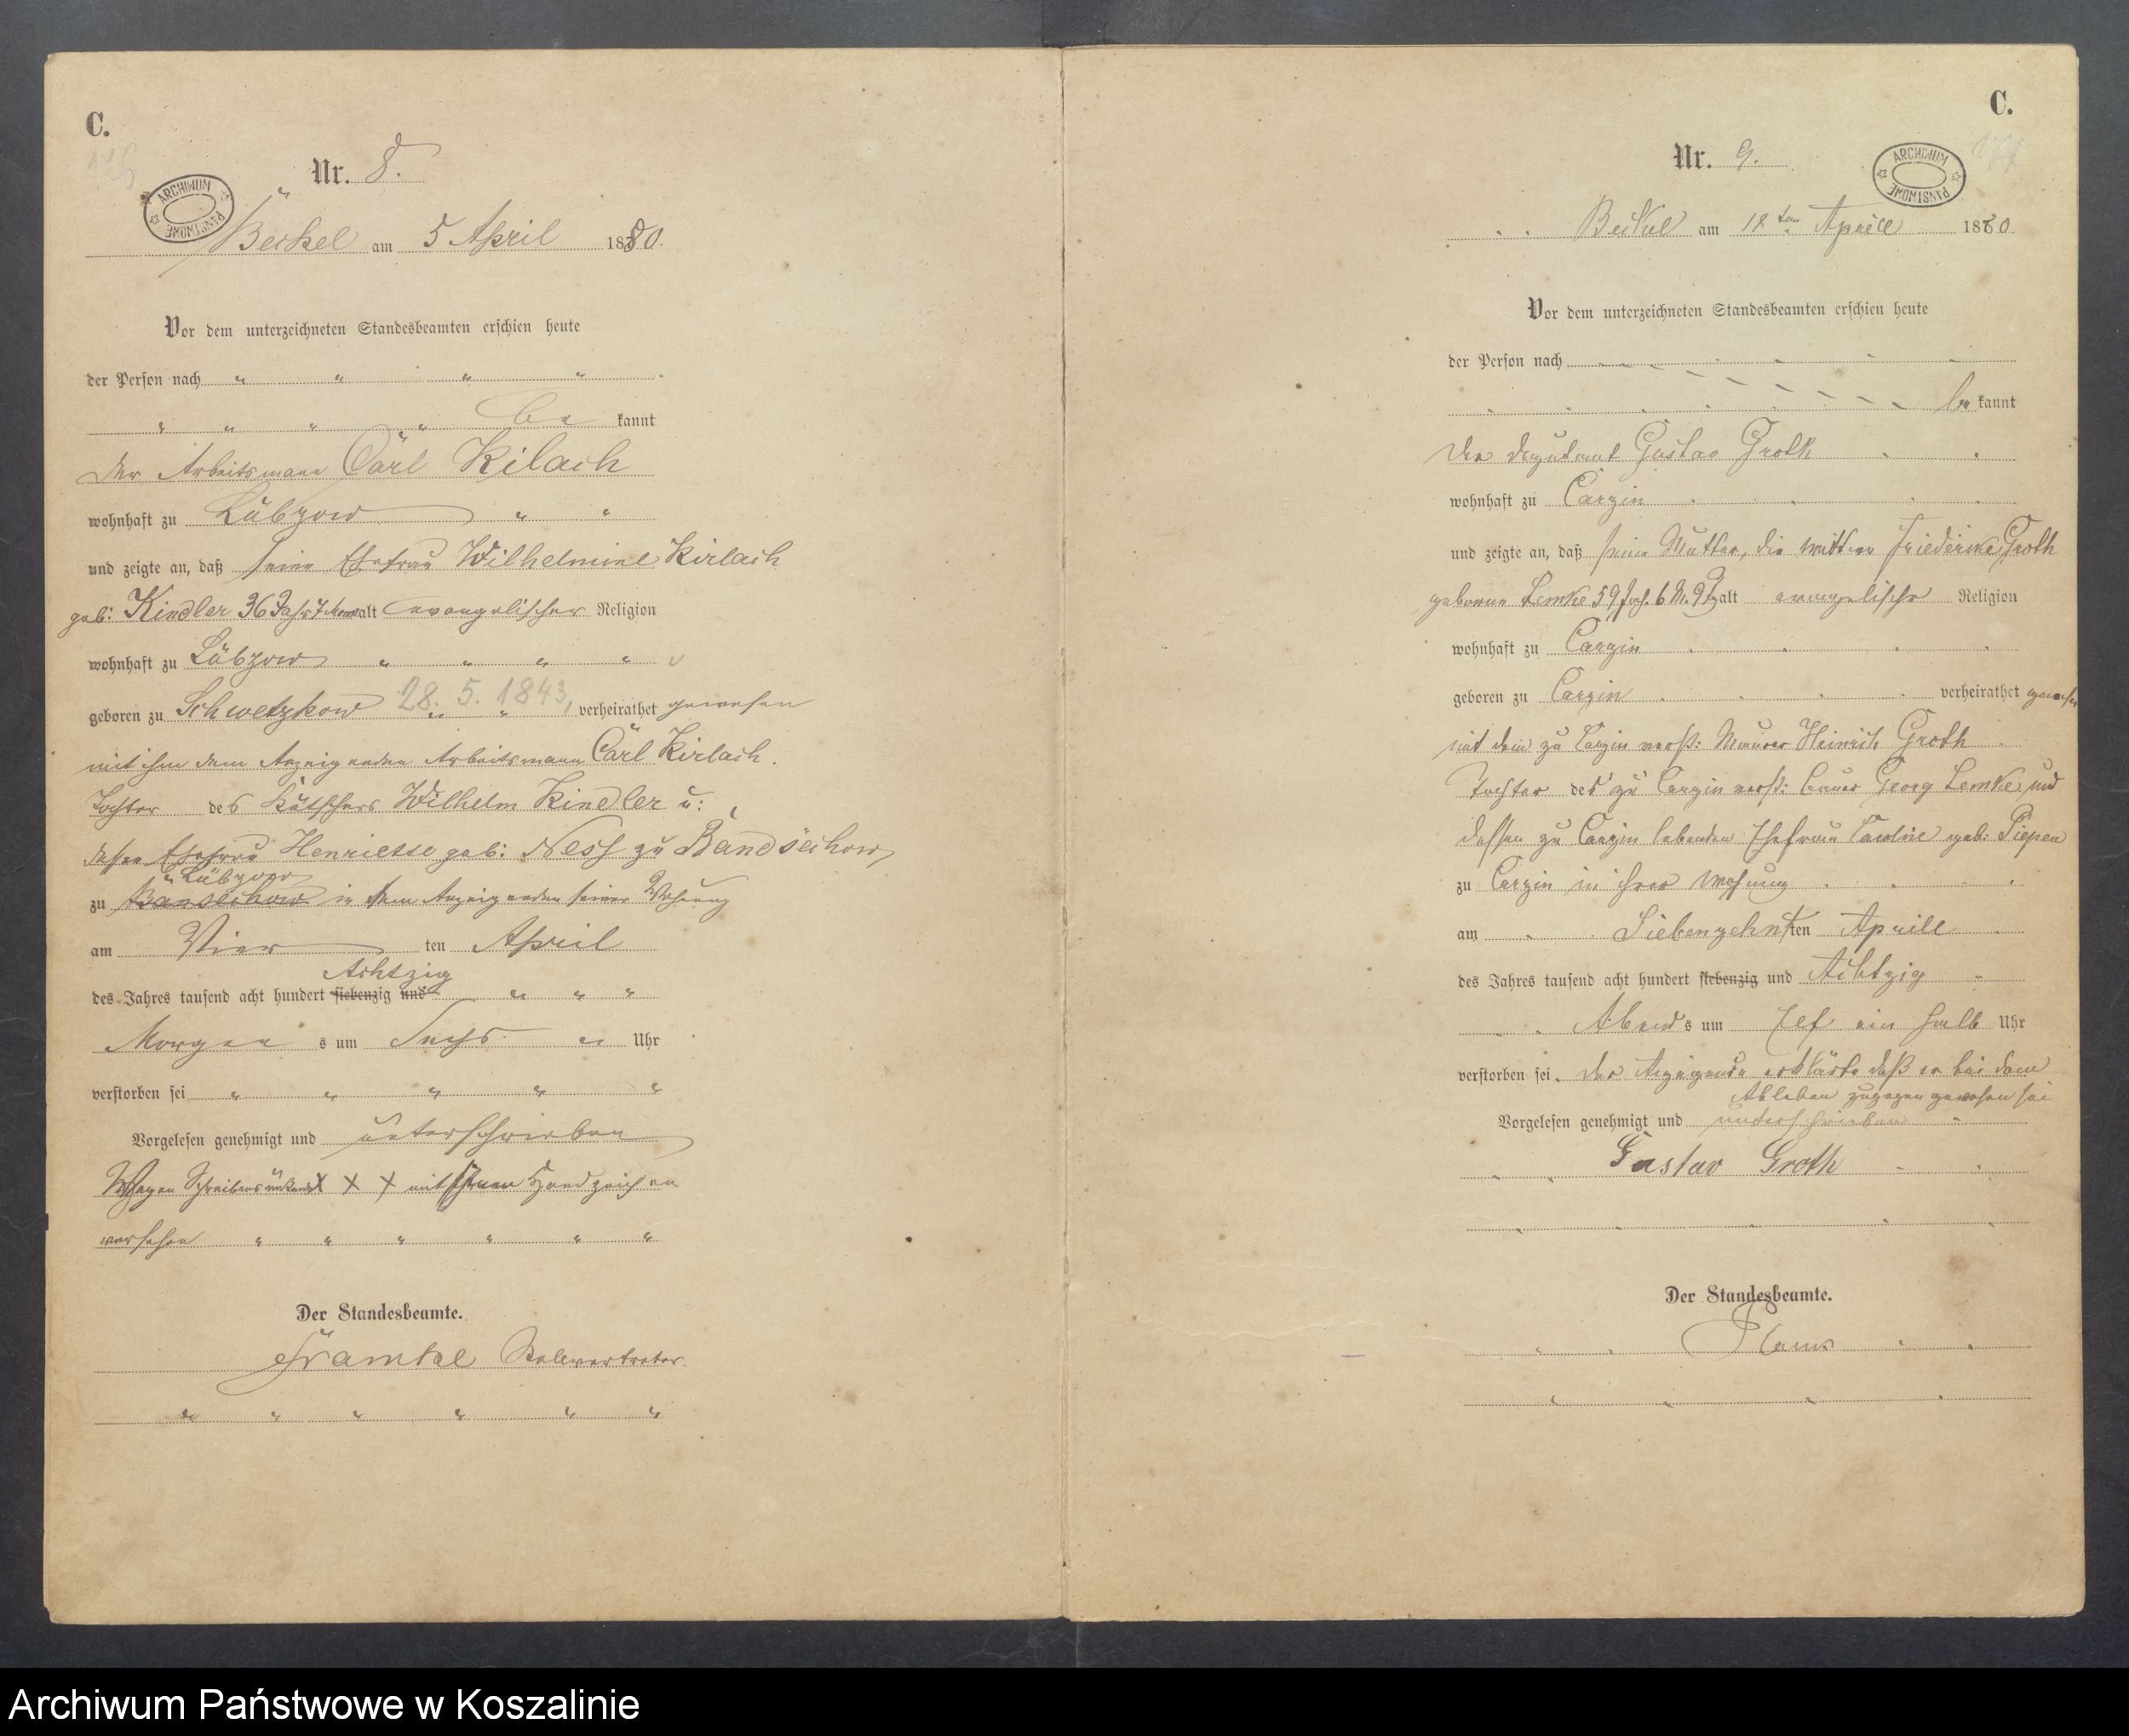 C.
Nr. 8.
ARCHIWUM PAŃSTWOWE
Beckel am 5 April 1880.
Vor dem unterzeichneten Standesbeamten erschien heute
der Person nach " " " "
" " " " be kannt
der Arbeitsmann Carl Kilach
wohnhaft zu Lübzow " "
und zeigte an, daß seine Ehefrau Wilhelmine Kirlach
geb: Kindler 36 Jahr 7 Mon alt evangelischer Religion
wohnhaft zu Lübzow " " " "
geboren zu Schwetzkow 28. 5. 1843, verheirathet gewesen
mit ihm dem Anzeigenden Arbeitsmann Carl Kirlach.
Tochter des Kätschers Wilhelm Kindler u:
dessen Ehefrau Henriette geb: Ness zu Bandsechow
" Lübzow
zu Banséchow in dem Anzeigenden seiner Wohnung
am Vier ten April
Achtzig
des Jahres tausend acht hundert siebenzig und " " "
Morgen s um Sechs " Uhr
verstorben sei " " " " "
Vorgelesen genehmigt und unterschrieben
Wegen Schreibensunkunde X X X mit ihren Handzeichen
versehen " " " " " "
Der Standesbeamte.
Framke Stelevertreter.
" " " " " "
C.
Nr. 9.
ARCHIWUM PAŃSTWOWE
Beckel am 18ten Aprill 1880
Vor dem unterzeichneten Standesbeamten erschien heute
der Person nach
be kannt
Der Deputant Gustav Groth
wohnhaft zu Carzin
und zeigte an, daß seine Mutter, die Wittwe Friedericke Groth
geborene Lemke 59 Jah. 6 M. 9 T. alt evangelische Religion
wohnhaft zu Carzin
geboren zu Carzin verheirathet gewesen
mit dem zu Carzin verst: Maurer Heinrich Groth
Tochter des zu Carzin verst: Bauer Georg Lemke und
dessen zu Carzin lebenden Ehefrau Caroline geb: Piepen
zu Carzin in ihrer Wohnung
am Siebenzehnten Aprill
des Jahres tausend acht hundert siebenzig und Achtzig "
Abend s um Elf ein halb Uhr
verstorben sei. Der Anzeigende erklärte daß er bei dem
Ableben zugegen gewesen sei
Vorgelesen genehmigt und unterschrieben
Gustav Groth
Der Standesbeamte.
Archiwum Państwowe w Koszalinie